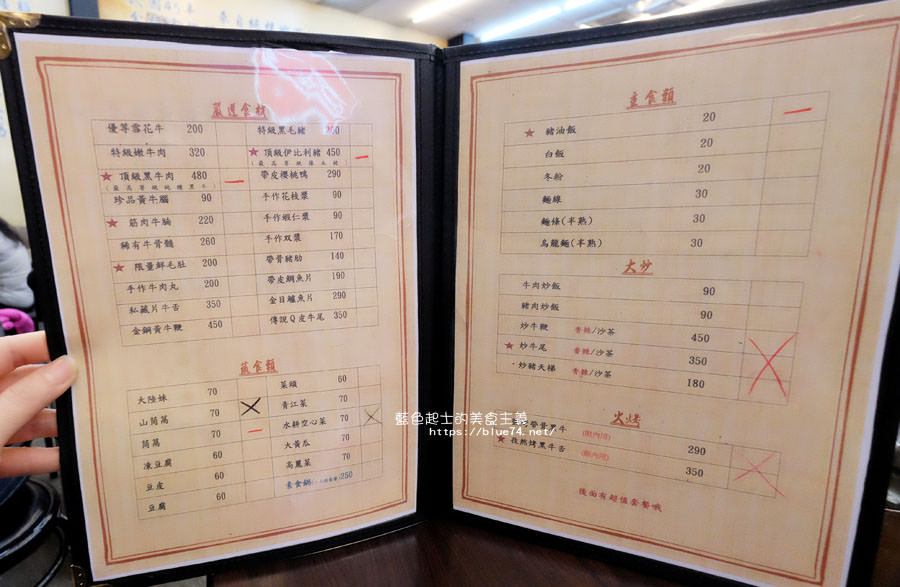 嚴選食材
優等雪花牛 200
特級嫩牛肉 320
★ 頂級黑牛肉 480
珍品黃牛腦 90
★ 筋肉牛腩 220
稀有牛脊髓 260
★ 限量鮮毛肚 200
手作牛肉丸 200
私藏片牛舌 350
金鋼黃牛鞭 450
特級黑毛豬
★ 頂級伊比利豬 450
帶皮櫻桃鴨 290
手作花枝漿 90
手作蝦仁漿 90
手作双漿 170
帶骨豬肋 140
帶皮鯛魚片 190
金目鱸魚片 290
傳說Q皮牛尾 350
蔬食類
大陸妹 70
山茼萬 70
茼萬 70
凍豆腐 60
豆皮 60
豆腐 60
菜頭 60
青江菜 70
水耕空心菜 70
大黃瓜 70
高麗菜 70
素食鍋 250
主食類
★ 豬油飯 20
白飯 20
冬粉 20
麵線 30
麵條(半熟) 30
烏龍麵(半熟) 30
大炒
牛肉炒飯 90
豬肉炒飯 90
炒牛鞭 香辣/沙茶 450
★ 炒牛尾 香辣/沙茶 350
炒豬天梯 香辣/沙茶 180
火烤
帶骨黑牛 (限內用) 290
★ 孜然烤黑牛舌 (限內用) 350
後面有超值套餐哦
藍色起士的美食主義
https://blue74.net/